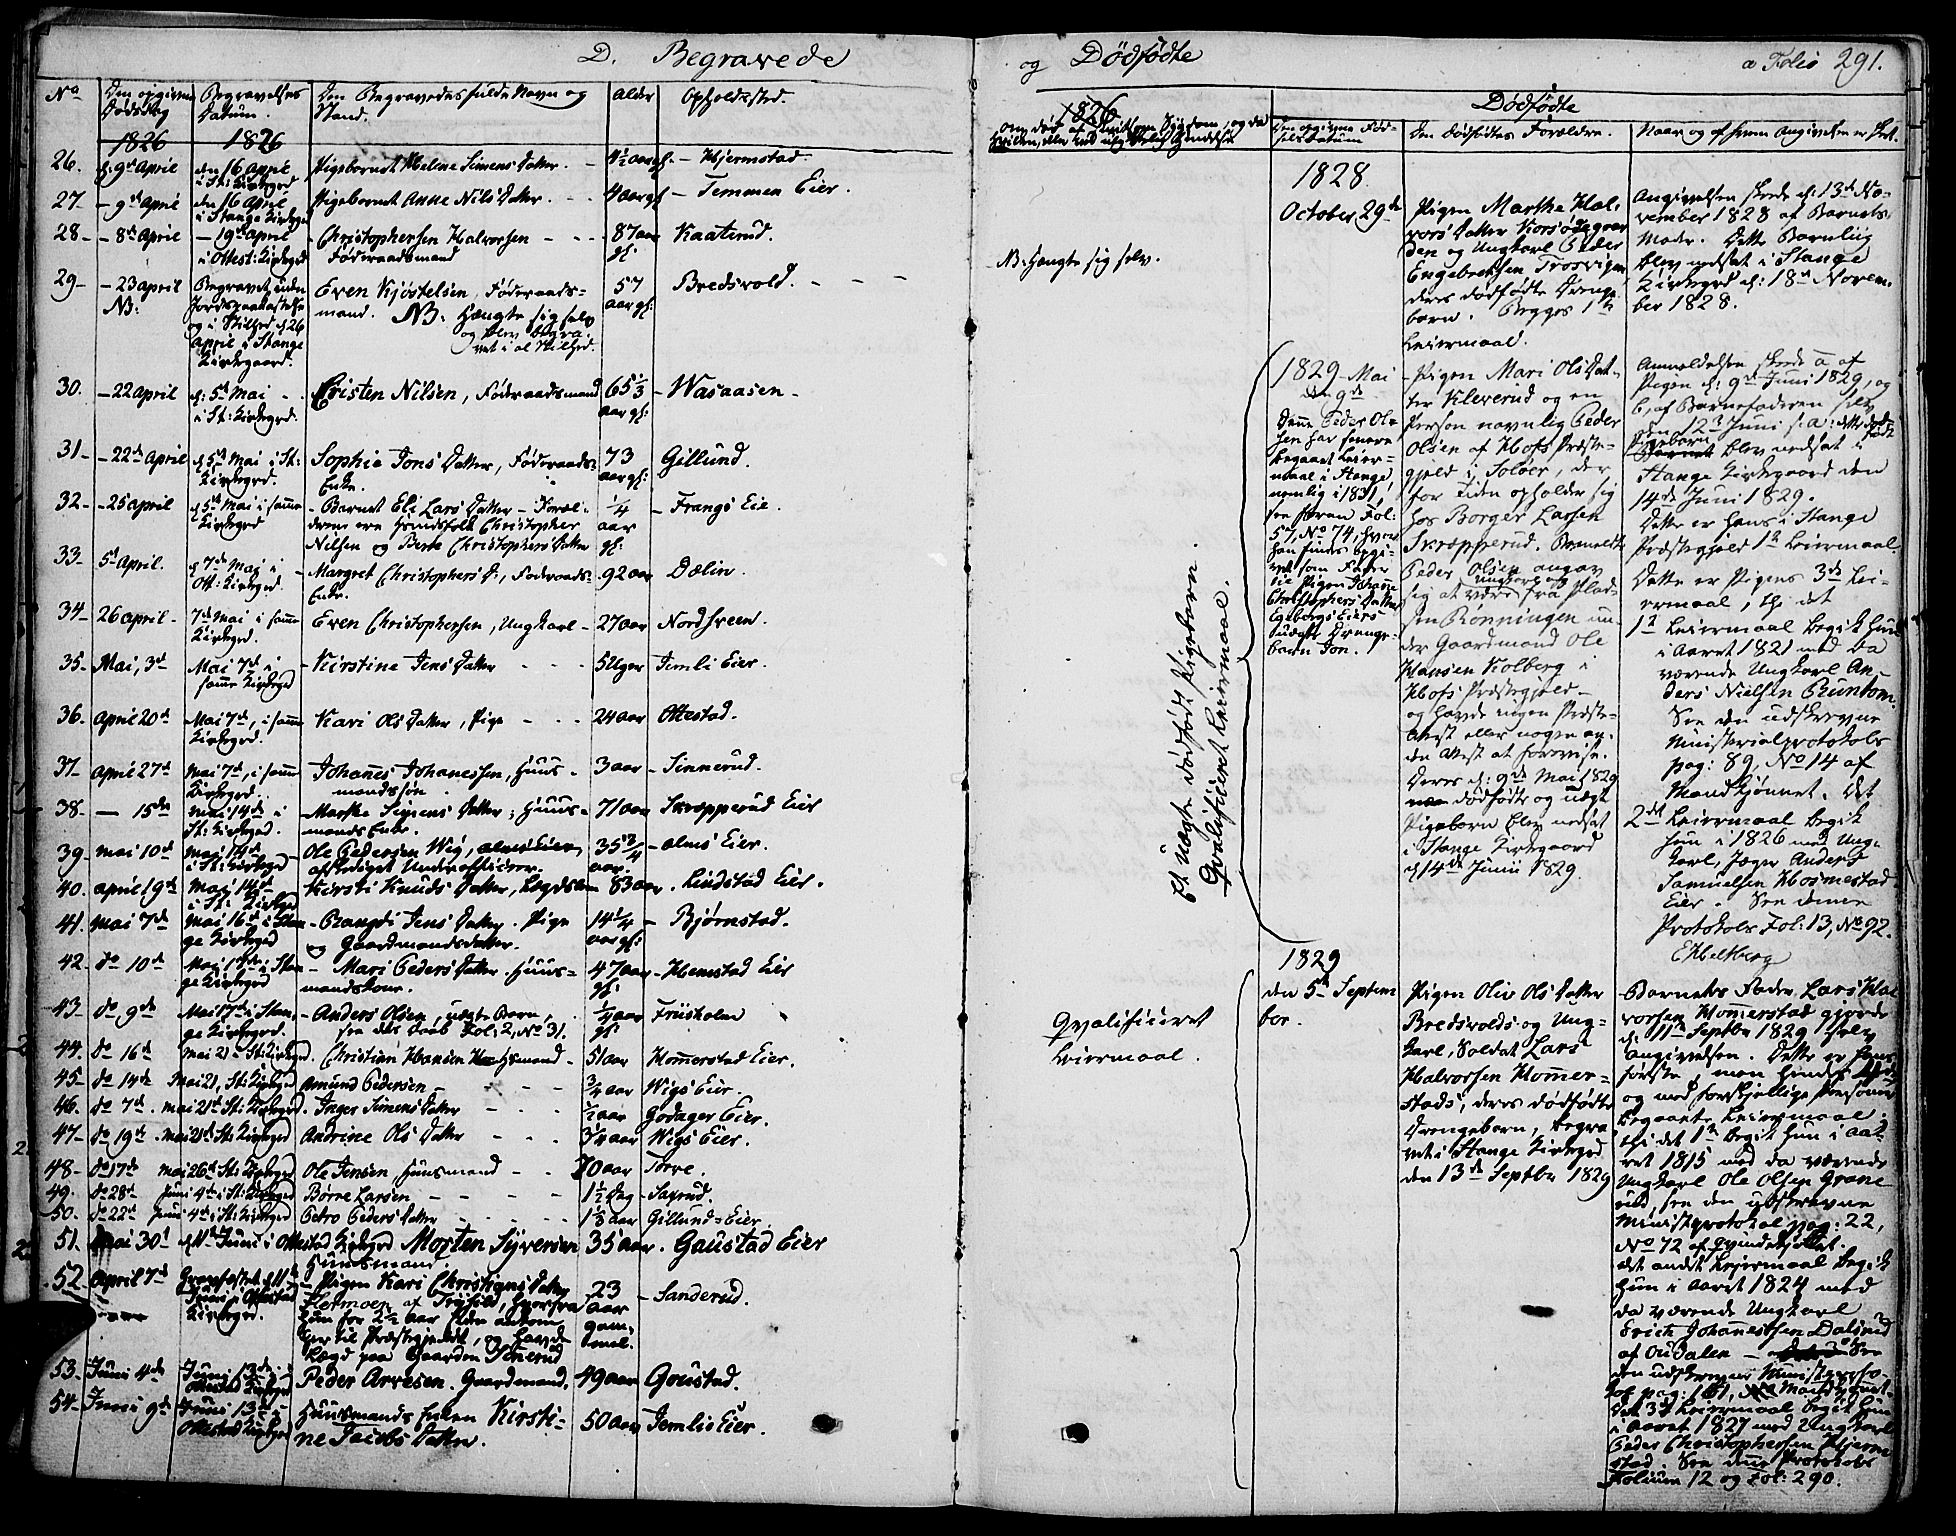 D. Begravede
No
Den opgivne Dødsdag
Begravelses Datum.
Den Begravedes fulde Navn og Stand.
Alder
Opholdssted.
1826
1826
26. d: 9de April
den 16 April i St: Kirkegrd
Pigebarnet Helene Simens Datter.
4½ aar gl. – Hjermstad
27. – 9de April
den 16 April i Stange Kirkegrd
Pigebarnet Anne Nils Datter.
4 aar gl – Temmen Eier.
28 – 8de April
– 19de April i Ottest: Kirkegrd
– Christophersen Halvorsen
Føderaadsmand
87 aar gl.
Kaaterud.
29 – 23 April
NB:
Begravet uden Jordspaakastelse og i Stilhed d 26 April i Stange Kirkegaard.
Even Kjøstelsen, Føderaadsmand. NB: Hængte sig selv og blev begravet i al Stilhed.
57 aar gl:
Bredsvold.
30. – 22 April
d: 5te Mai i St: Kirkegrd.
Cristen Nilsen, Føderaadsmand
65⅓ aar gl:
Wasaasen
31 – 22de April
d 5te Mai i St: Kirkegrd.
Sophie Jons Datter, Føderaads Enke.
73 aar gl:
Gillund.
32. – 25 April
d 5te Mai i samme Kirkegrd
Barnet Eli Lars Datter – Forældrene ere Huusfolk Christopher Nilsen og Berte Christophers Datter
¼ aar gl:
Frangs Eie.
33. 5te April.
d 7de Mai i Ott: Kirkegrd.
Margret Christophers D., Føderaads Enke.
92 aar
Dælin.
34 – 26 April
7de Mai i samme Kirkegrd.
Even Christophersen, Ungkarl
27 aar
Nordsveen.
35. Mai, 3de
Mai 7de i samme Kirkegrd
Kirstine Jens Datter
5 Uger
Jemli Eier.
36. April 20de
Mai 7de, i samme Kirkegrd.
Kari Ols Datter, Pige
24 aar
Ottestad.
37 – April 27de
Mai 7de, i samme Kirkegrd.
Johannes Johannessen, Huusmandssøn
3 aar
Sinnerud.
38. – 15de
Mai 14de i St: Kirkegrd.
Marthe Simens Datter; Huusmands Enke.
71 aar
Skræpperud Eier
39 – Mai 10de
Mai 14de i St: Kirkegrd
Ole Pedersen Wig, Alms Eier, afskediget Underofficeer.
35¾ aar.
Alms Eier.
40. April 19de
Mai 14de i St: Kirkegrd
Kirsti Knuds Datter, Lægdslem
83 aar
Lindstad Eier.
41. Mai 7de
Mai 16de i Stange Kirkegrd
Brangdi Jens Datter. Pige og Gaardmandsdatter.
14¼ aar gl:
Bjørnstad.
42. do 10de
Mai 17de i Stange Kirkegrd
Mari Peders Datter. Huusmandskone.
47 aar gl:
Hemstad Eier
43. do 9de
Mai 17de i Stange Kirkegrd.
Anders Olsen, uægte Barn, see dets Daab Fol: 2, No 31.
¼ aar gl:
Friisholm
44. do 16de
Mai 21 St: Kirkegrd.
Christian Hansen Huusmand
51 aar
Hommerstad Eier.
45 – do 14de
Mai 21, St: Kirkegrd
Amund Pedersen
¾ aar
Wigs Eier.
46. do 7de
Mai 21de St: Kirkegrd.
Inger Simens Datter
½ aar
Godager Eier.
47 – do 19de
Mai 21de St: Kirkegrd
Andrine Ols Datter
¾ aar
Wigs Eier.
48 – do 17de
Mai 26de St: Kirkegrd
Ole Jensen Huusmand
70 aar
Torve.
49. do 28de
Juni 4de i St: Kirkegrd
Børre Larsen
1½ Dag
Saxrud.
50. do 22de
Juni 4de i St: Kirkegrd
Petro Peders Datter
1⅓ aar
Gillunds Eier
51. Mai 30te
d 11te Juni i Ottestad Kirkegrd
Morten Syversen Huusmand.
35 aar.
Gaustad Eier
52 April 7de
Gravfæstet d 11te Juni i Ottestad Kirkegrd.
Pigen Kari Christians Datter Flermoen af Trysild, hvorfra hun for 2½ Aar siden ankom her til Præstegjeldet, og havde Lægd paa Gaarden Sinerud
23 aar gammel.
Sanderud.
53. Juni 4de
Juni 13de i Ottestad Kirkegrd
Peder Arvesen. Gaardmand.
49 aar
Goustad.
54 – Juni 9de
Juni 13de Ottestad Kirkegrd
Huusmands Enken Kirstine Jacobs Datter.
50 aar
Jemlis Eier.
og Dødfødte
a Folio 291.
1826
NB: Hængte sig selv.
Et uægte dødfødt Pigebarn.
Qvalificeret Leiermaal.
Qvalificeret
Leiermaal.
Dødfødte
Den opgivne Fødselsdatum
Den Dødfødtes Forældre.
Naar og af hvem Angivelsen er skeet.
1828
October 29de
Pigen Marthe Hal-
vors Datter Korsødegaar-
den og Ungkarl Peder
Engebretsen Trosvigen
deres dødfødte Drenge-
barn. Begges 1te
Leiermaal.
Angivelsen skede d: 13de No-
vember 1828 af Barnets
Moder. Dette Barnliig
blev nedsat i Stange
Kirkegrd d: 18de Novem-
ber 1828.
1829 – Mai
den 9de
Denne Peder Ol-
sen har senere
begaaet Leier-
maal i Stange,
nemlig i 1831,
see foran Fol:
57, No 74, hvor
han findes opgi-
vet som Fader
til Pigen Johanne
Christophers Datters
Egebergs Eiers
uægte Drenge-
barn Jon.
Pigen Mari Ols Dat-
ter Kleverud og en
Person navnlig Peder
Olsen af Hofs Præste-
gjeld i Soløer, der
for Tiden opholder sig
hos Borger Larsen
Skræpperud. Bemeldte
Peder Olsen angav
sig at være Ungkarl og fra Plad-
sen Rønningen un-
der Gaardmand Ole
Hansen Kolberg i
Hofs Præstegjeld –
og havde ingen Præste-
Attest eller nogen an-
den Attest at forevise.
Deres d: 9de Mai 1829
dødfødte og uægte
Pigebarn blev nedsat
i Stange Kirkegaard
d 14de Junii 1829.
Anmeldelsen skede a, af
Pigen d: 9de Juni 1829, og
b, af Barnefaderen selv
den 12te Juni s: a: dette døde
Pigebarn blev nedsat i
Stange Kirkegaard den
14de Juni 1829.
Dette er hans i Stange
Præstegjeld 1te Leiermaal.
Dette er Pigens 3de Lei-
ermaal, thi det
1te Leiermaal begik hun
i Aaret 1821 med da
værende Ungkarl An-
ders Nielsen Bruntom.
See den udskrevne
Ministerialprotokols
pag: 89, No 14 af
Mandkjønnet. Det
2det Leiermaal begik
hun i 1826 med Ung-
karl, Jæger Anders
Samuelsen Hosmestad
Eier. See denne
Protokols Fol: 13, No 92.
EHeltberg
1829
den 5te Septem
ber.
Pigen Oliv Ols Datter
Bredsvolds og Ung-
karl, Soldat Lars
Halvorsen Hommer-
stads, deres dødfødte
Drengebarn, begra-
vet i Stange Kirkegrd
den 13de Septbr 1829
Barnets Fader Lars Hal
vorsen Homerstad gjorde
d: 11te Septbr 1829 selv
Angivelsen. Dette er hans
første – men hendes
og med forskjellige Personer
begaaede Leiermaal;
thi det 1te begik hun i Aa-
ret 1815 med da værende
Ungkarl Ole Olsen Grane-
rud, see den udskrevne
Ministprotokol pag: 22,
No 72 af Qvindekjønnet.
Det andet Leiermaal begik
hun i Aaret 1824 med
da værende Ungkarl
Erich Johannessen Dalsrud
af Oudalen – See
den udskrevne Ministerpro-
tok pag: 161, Mandkjønnet.
Det 3de Leiermaal begik hun
i Aaret 1827 med Ungkarl
Peder Christophersen Hjerm-
stad. See denne Protokols
Folium 12 og Fol: 290.